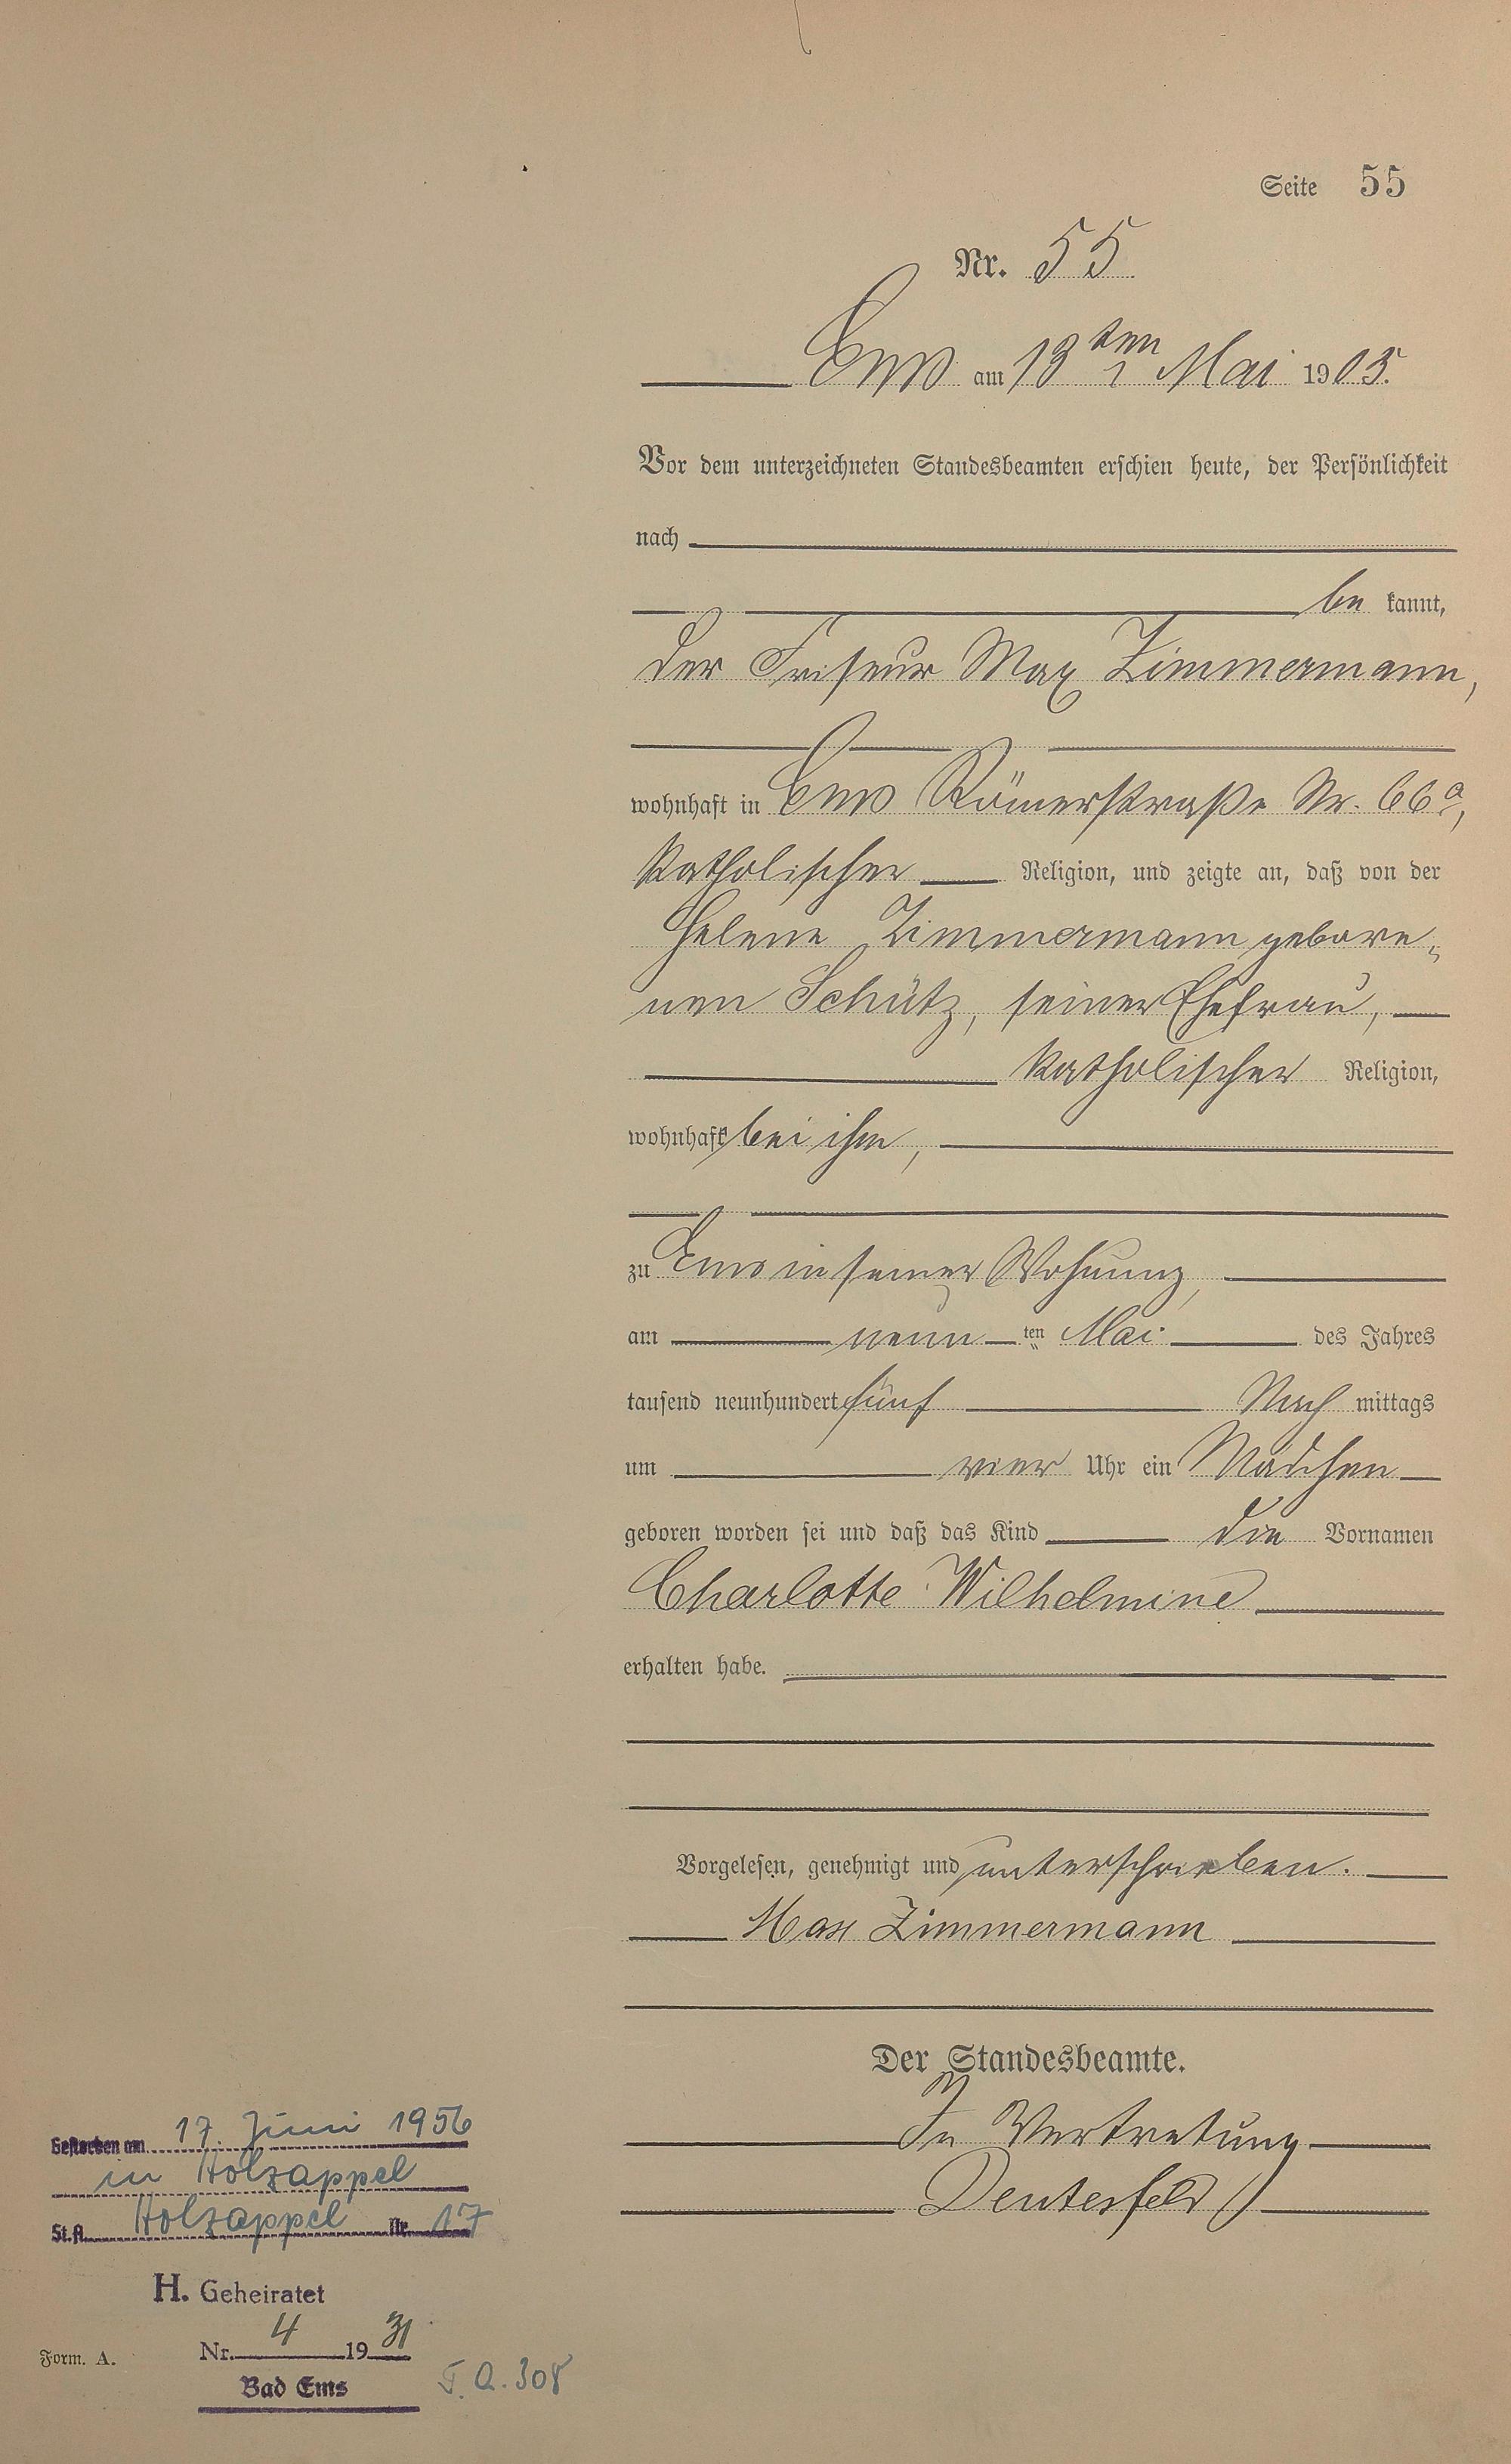 Seite 55
Nr. 55
Ems am 13ten Mai 1905.
Vor dem unterzeichneten Standesbeamten erschien heute, der Persönlichkeit
nach
be kannt,
der Friseur Max Zimmermann,
wohnhaft in Ems Römerstraße Nr. 66a,
katholischer Religion, und zeigte an, daß von der
Helene Zimmermann gebore-
nen Schütz, seiner Ehefrau,
katholischer Religion,
wohnhaft bei ihm,
zu Ems in seiner Wohnung,
am neun ten Mai des Jahres
tausend neunhundert fünf Nach mittags
um vier Uhr ein Mädchen
geboren worden sei und daß das Kind die Vornamen
Charlotte Wilhelmine
erhalten habe.
Vorgelesen, genehmigt und unterschrieben.
Max Zimmermann
Der Standesbeamte.
In Vertretung
Deutesfeld
Gestorben am 17. Juni 1956
in Holzappel
St.A. Holzappel Nr. 17
H. Geheiratet
Nr. 4 1931
Bad Ems
Form. A.